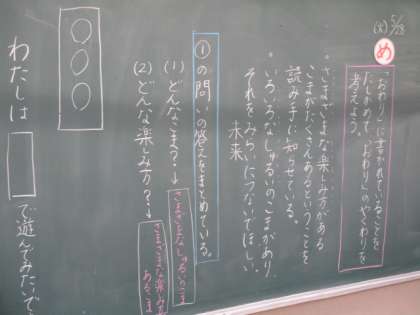 5/28
(火)
め
「おわり」に書かれていることを
たしかめて、「おわり」のやくわりを
考えよう。
・さまざまな楽しみ方がある
こまがたくさんあるということを
読み手に知らせている。
・いろいろなしゅるいのこまがあり、
それをみらいにつないでほしい。
未来
①の問いの答えをまとめている。
(1) どんなこま?→さまざまなしゅるいのこま
(2) どんな楽しみ方?→さまざまな楽しみ方
あるこま
○○○
わたしは で遊んでみたいで